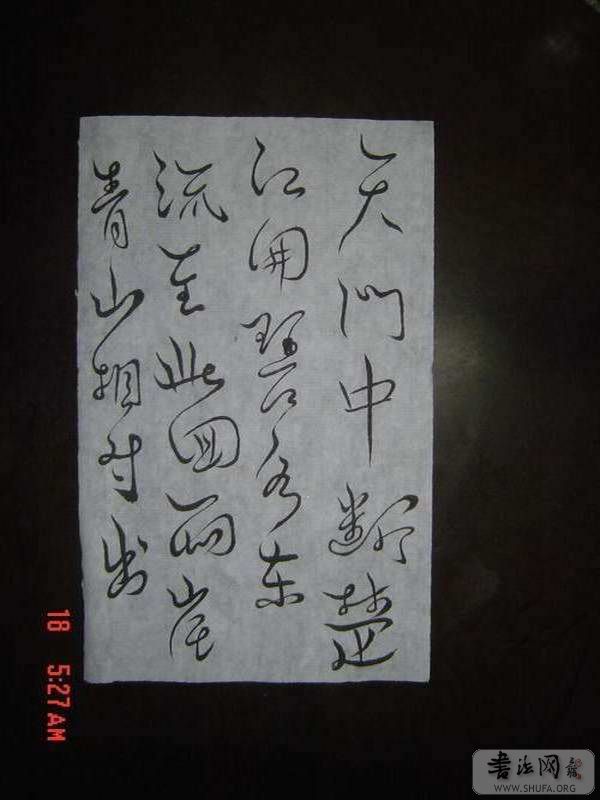 天門中斷楚
江開碧水東
流至此回兩岸
青山相對出
18 5:27AM
書法网
WWW.SHUFA.ORG